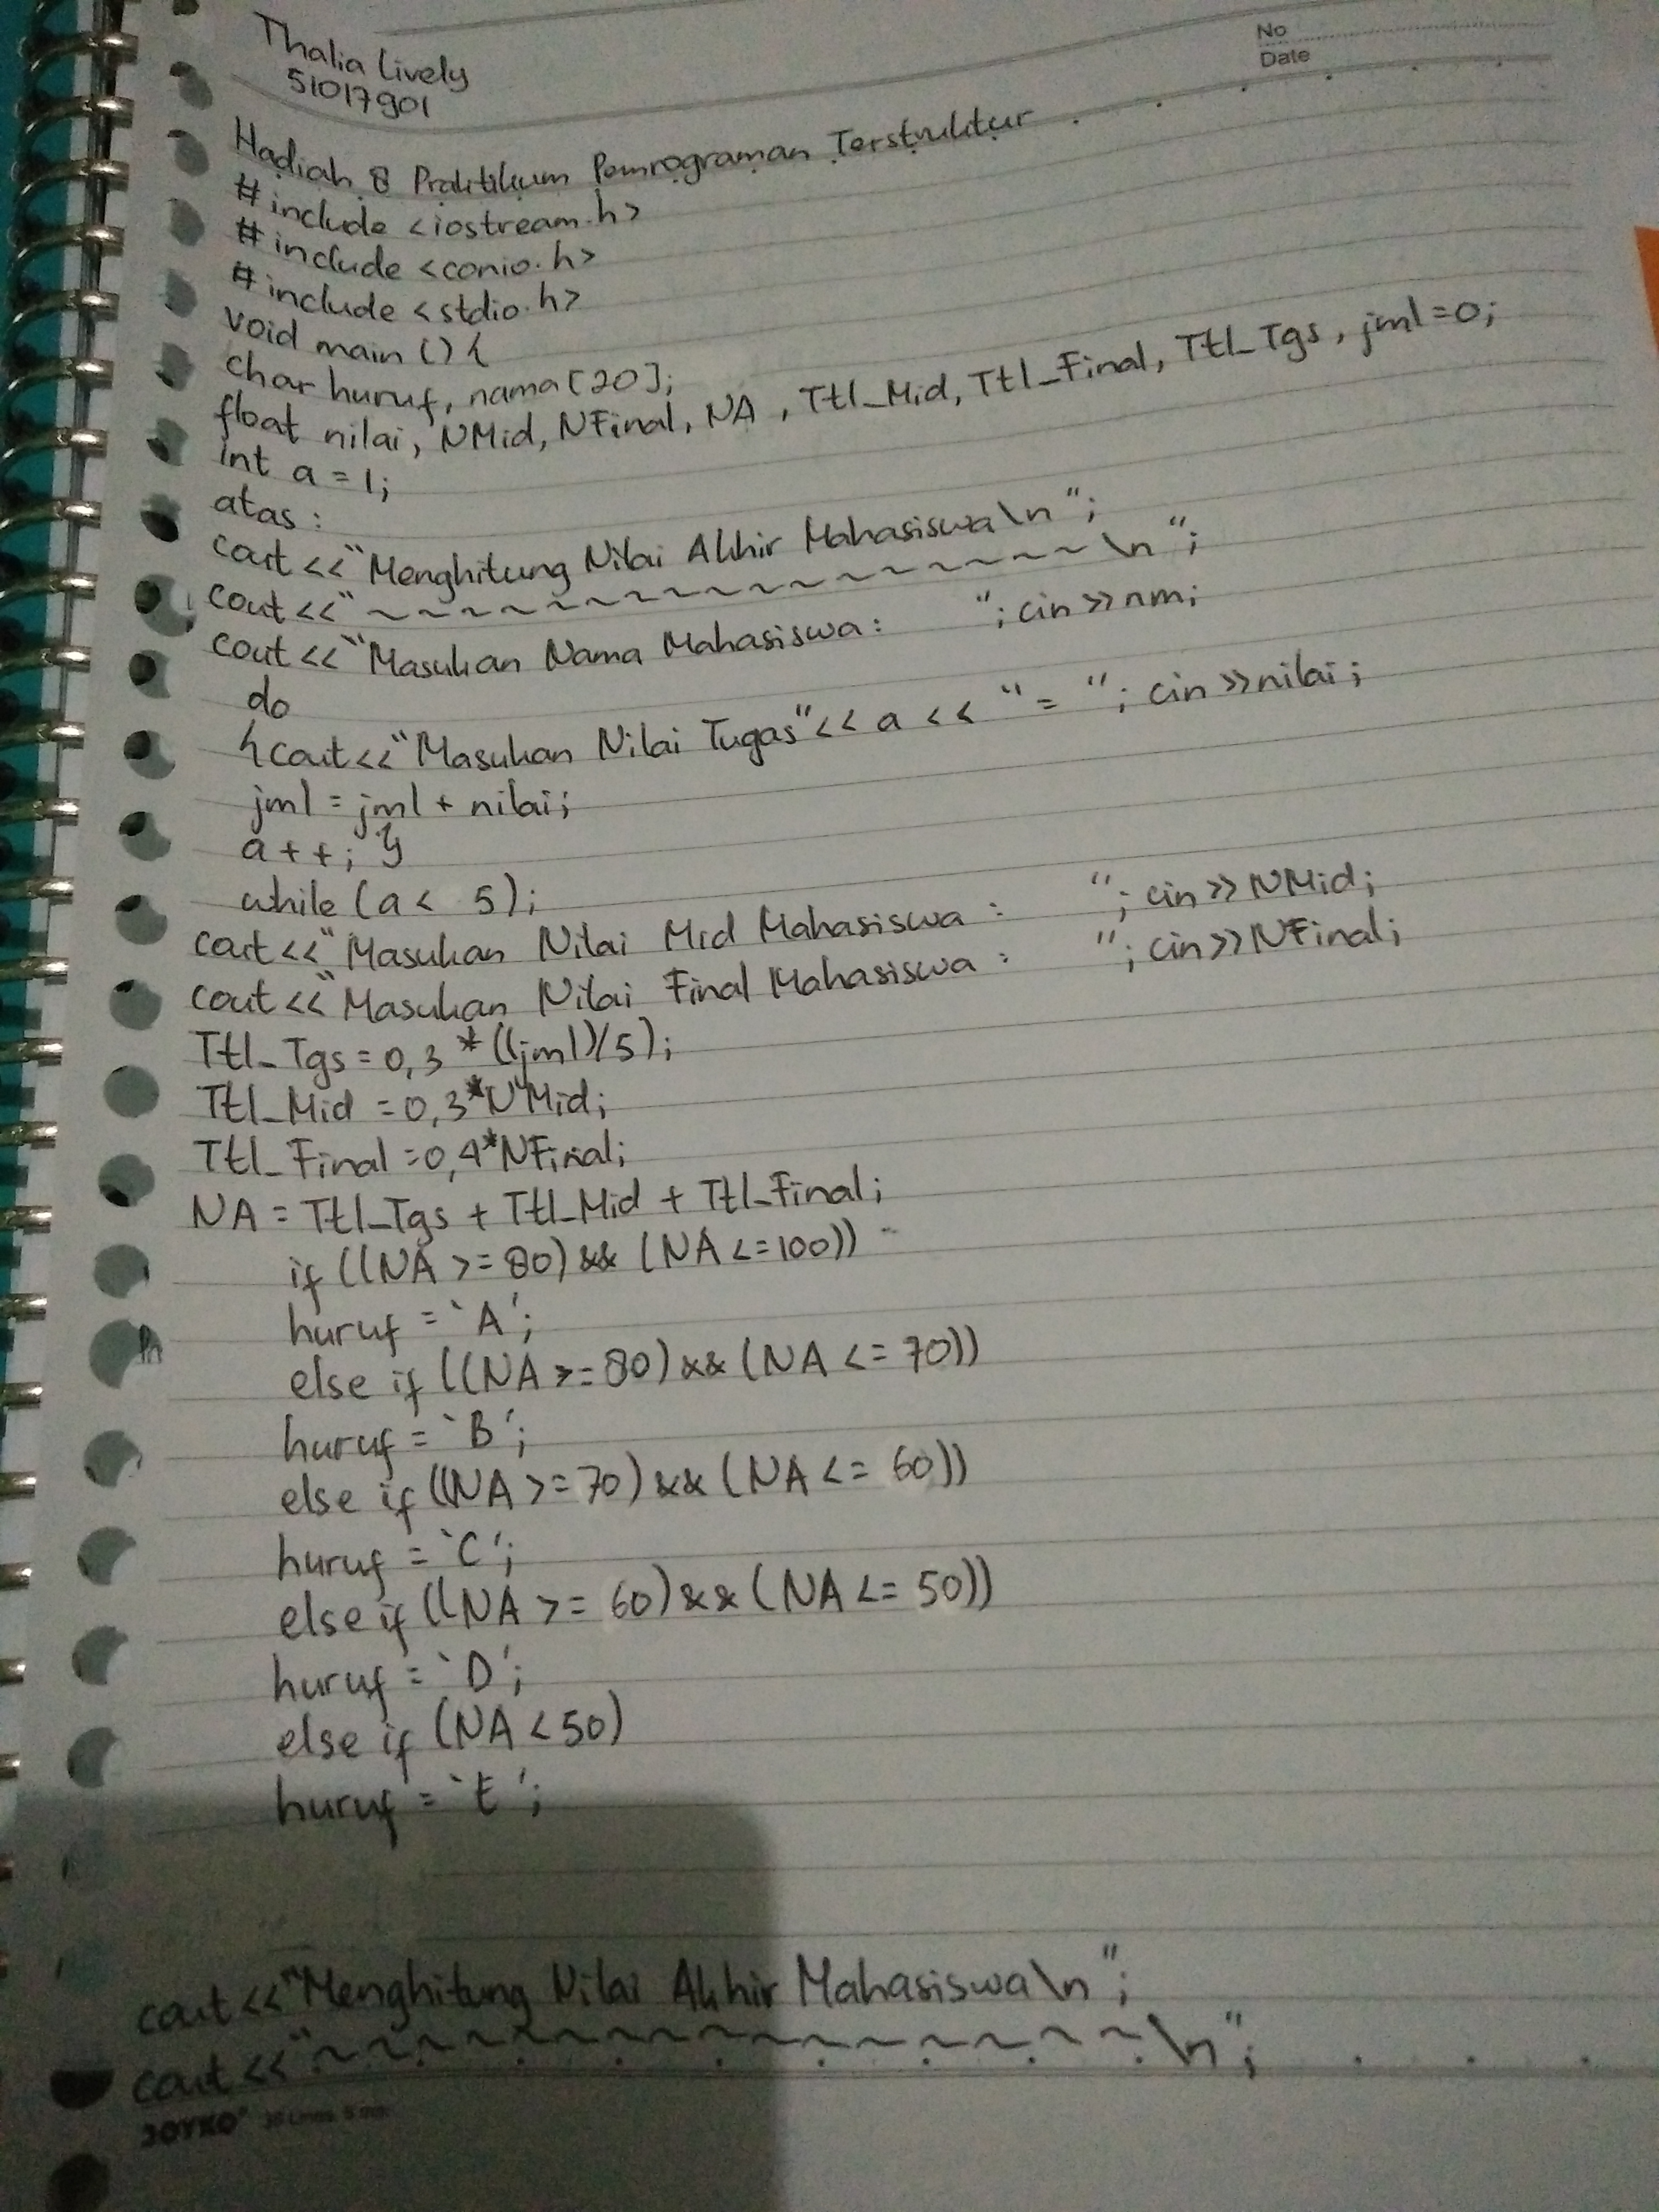 No
Date
Thalia Lively
51017901
Hadiah 8 Praktikum Pemrograman Terstruktur
#include <iostream.h>
#include <conio.h>
#include <stdio.h>
void main () {
char huruf, nama [20];
float nilai, NMid, NFinal, NA, Ttl_Mid, Ttl_Final, Ttl_Tgs, jml=0;
int a = 1;
atas :
cout <<"Menghitung Nilai Akhir Mahasiswa\n";
cout <<"~~~~~~~~~~~~~~~~~\n";
cout <<"Masukan Nama Mahasiswa: "; cin >> nm;
do
{ cout <<"Masukan Nilai Tugas" << a << " = "; cin >> nilai;
jml = jml + nilai;
a++; }
while (a < 5);
cout <<"Masukan Nilai Mid Mahasiswa : "; cin >> NMid;
cout <<"Masukan Nilai Final Mahasiswa : "; cin >> NFinal;
Ttl_Tgs = 0,3 * ((jml)/5);
Ttl_Mid = 0,3*NMid;
Ttl_Final = 0,4*NFinal;
NA = Ttl_Tgs + Ttl_Mid + Ttl_Final;
if ((NA >= 80) && (NA <= 100))
huruf = `A';
else if ((NA >= 80) && (NA <= 70))
huruf = `B';
else if ((NA >= 70) && (NA <= 60))
huruf = `C';
else if ((NA >= 60) && (NA <= 50))
huruf = `D';
else if (NA < 50)
huruf = `E';
cout <<"Menghitung Nilai Akhir Mahasiswa\n";
cout <<"~~~~~~~~~~~~~~~~~\n";
JOYKO